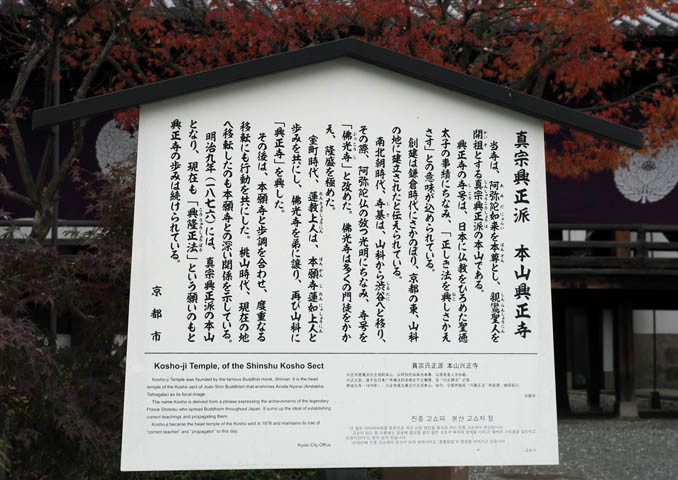 真宗興正派　本山興正寺
当寺は、阿弥陀如来を本尊とし、親鸞聖人を
開祖とする真宗興正派の本山である。
興正寺の寺号は、日本に仏教をひろめた聖徳
太子の事績にちなみ、「正しき法を興しさかえ
さす」との意味が込められている。
創建は鎌倉時代にさかのぼり、京都の東、山科
の地に建立されたと伝えられている。
南北朝時代、寺基は、山科から渋谷へと移り、
その際、阿弥陀仏の放つ光明にちなみ、寺号を
「佛光寺」と改めた。佛光寺は多くの門徒をかか
え、隆盛を極めた。
室町時代、蓮教上人は、本願寺蓮如上人と
歩みを共にし、佛光寺を弟に譲り、再び山科に
「興正寺」を興した。
その後は、本願寺と歩調を合わせ、度重なる
移転にも行動を共にした。桃山時代、現在の地
へ移転したのも本願寺との深い関係を示している。
明治九年（一八七六）には、真宗興正派の本山
となり、現在も「興隆正法」という願いのもと
興正寺の歩みは続けられている。
京都市
Kosho-ji Temple, of the Shinshu Kosho Sect
Kosho-ji Temple was founded by the famous Buddhist monk, Shinran. It is the head
temple of the Kosho sect of Jodo Shin Buddhism that enshrines Amida Nyorai (Amitabha
Tathagata) as its focal image.
The name Kosho is derived from a phrase expressing the achievements of the legendary
Prince Shotoku who spread Buddhism throughout Japan. It sums up the ideal of establishing
correct teachings and propagating them.
Kosho-ji became the head temple of the Kosho sect in 1876 and maintains its role of
"correct teacher" and "propagator" to this day.
Kyoto City Office
真宗兴正派 本山兴正寺
진종 고쇼파 본산 고쇼지 절